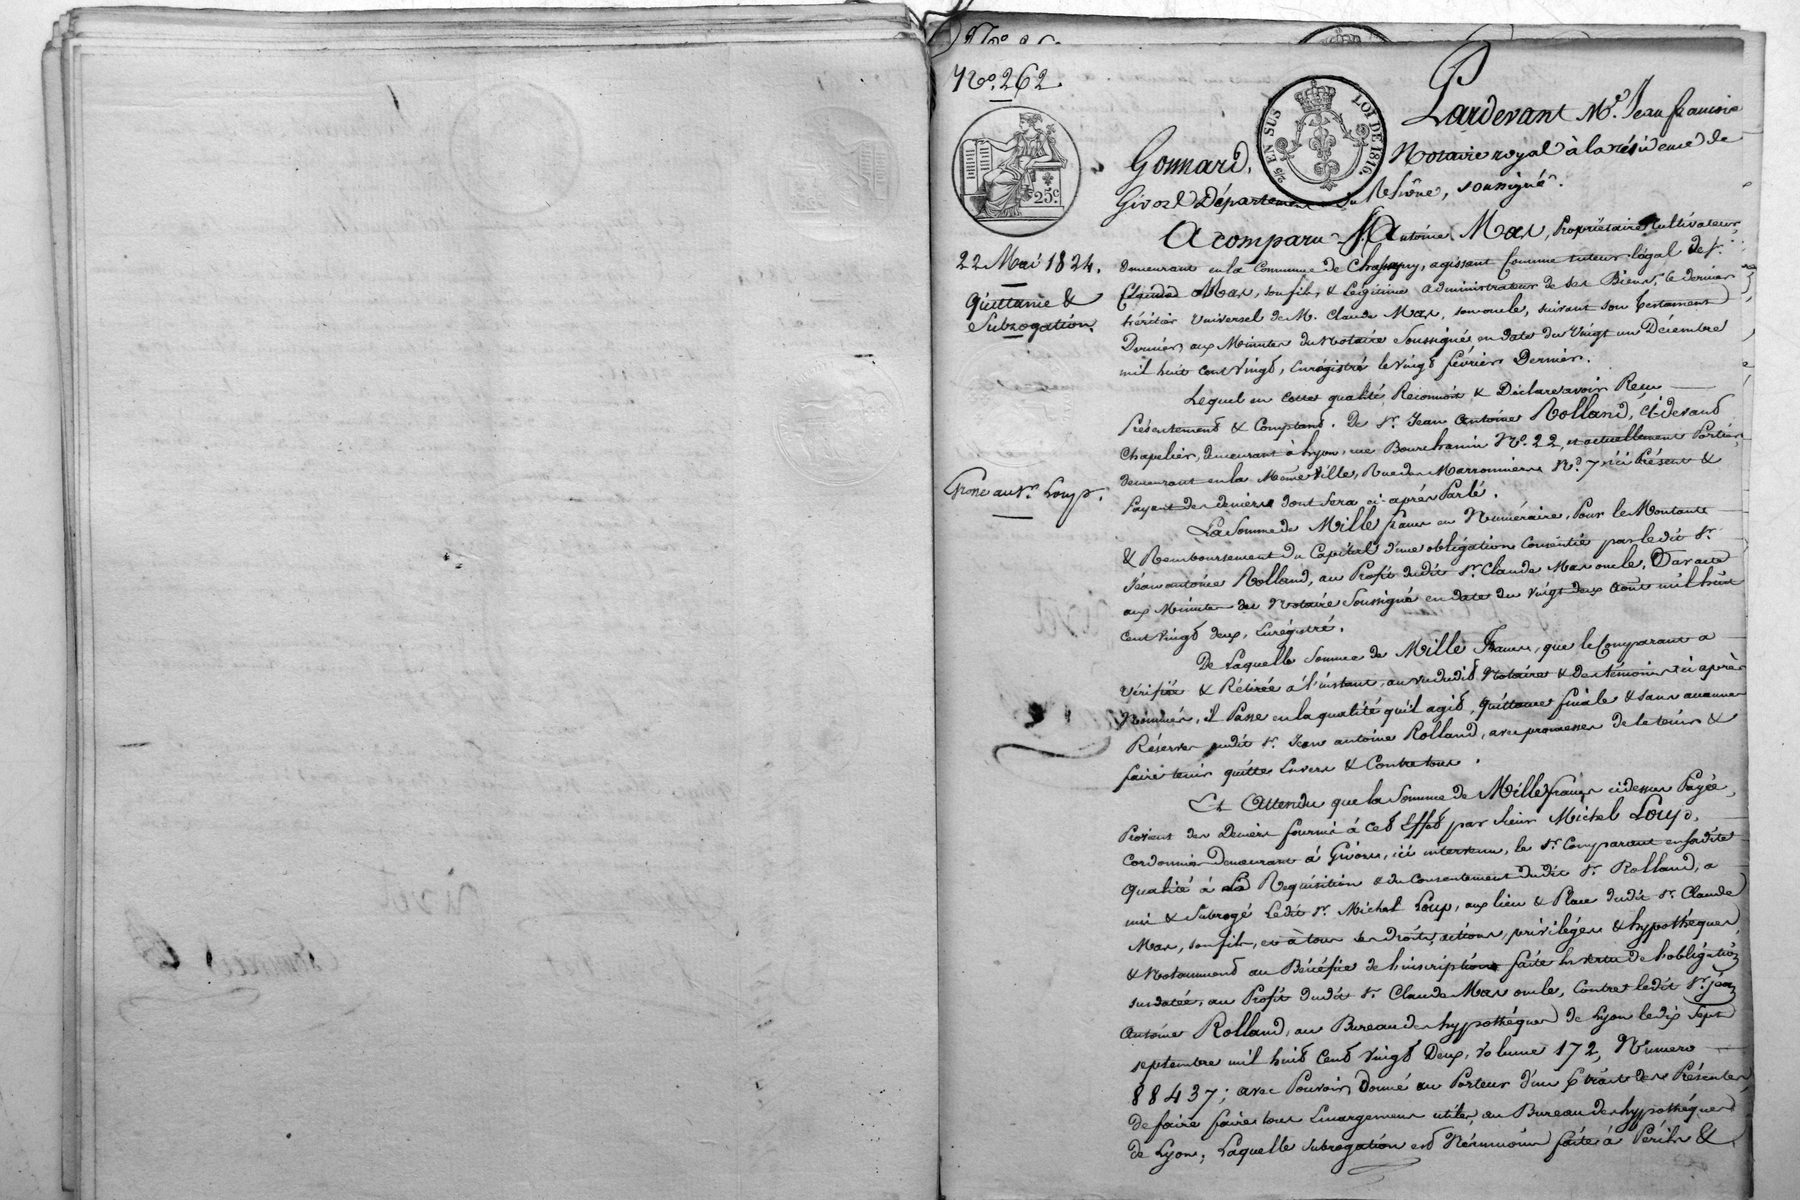 No. 262
25c
22 Mai 1824.
Quittance &
Subrogation.
Grosse au Sr. Loup.
EN SUS
LOI DE 1816.
Pardevant Me. Jean françois
Gonnard, Notaire royal à la résidence de
Givors Département du Rhône, soussigné.
A comparu Sr. Antoine Mas, Propriétaire Cultivateur,
demeurant en la Commune de Chassagny, agissant comme tuteur légal de Sr.
Claude Mas, son fils, & Légitime Administrateur de ses Biens, ce dernier
héritier Universel de M. Claude Mas, son oncle, suivant son testament
Dernier, aux Minutes du Notaire Soussigné, en date du Vingt un Décembre
mil huit cent Vingt, Enregistré le vingt février Dernier.
Lequel en cette qualité, Reconnoit & Déclare avoir Reçu
Présentement & Comptant. De Sr. Jean Antoine Rolland, Cidevant
Chapelier, demeurant à Lyon, rue Bourchanin No. 22, et actuellement Portier,
demeurant en la Même Ville, Rue des Marronniers No. 7, ici Présent &
Payant des deniers dont sera ci-après Parlé.
La Somme de Mille francs en Numéraire, Pour le Montant
& Remboursement du Capital d'une obligation Consentie par ledit Sr.
Jean antoine Rolland, au Profit dudit Sr. Claude Mas oncle, Par acte
aux Minutes du Notaire Soussigné en date du Vingt deux Août mil huit
cent vingt deux, Enrégistré.
De Laquelle Somme de Mille Francs, que le Comparant a
Vérifiée & Retirée à l'instant, au vu dudit Notaire & des témoins ci après
Nommés, il Passe en la qualité qu'il agit, quittance finale & sans aucune
Réserve audit Sr. Jean antoine Rolland, avec promesse de le tenir &
faire tenir quitte Envers & Contre tous.
Et Attendu que la Somme de Mille francs ci dessus Payée,
Provient des deniers fournis à cet Effet par Sieur Michel Loup,
Cordonnier Demeurant à Givors, ici intervenu, le Sr. Comparant en sadite
Qualité à la Requisition & du Consentement dudit Sr. Rolland, a
mis & Subrogé Ledit Sr. Michel Loup, aux lieu & Place dudit Sr. Claude
Mas, son fils, et à tous ses droits, actions, priviléges & hypothèques,
& Notamment au Bénéfice de l'inscription faite En vertu de l'obligation
susdatée, au Profit dudit Sr. Claude Mas oncle, Contre ledit Sr. Jean
Antoine Rolland, au Bureau des hypothèques de Lyon le dix Sept
septembre mil huit Cent Vingt Deux, Volume 172, Numero
88437; avec Pouvoir Donné au Porteur d'un Extrait des Présentes
de faire faire tous Emargemens utiles au Bureau des hypothèques
de Lyon; Laquelle Subrogation est Néanmoins faite à Périls &